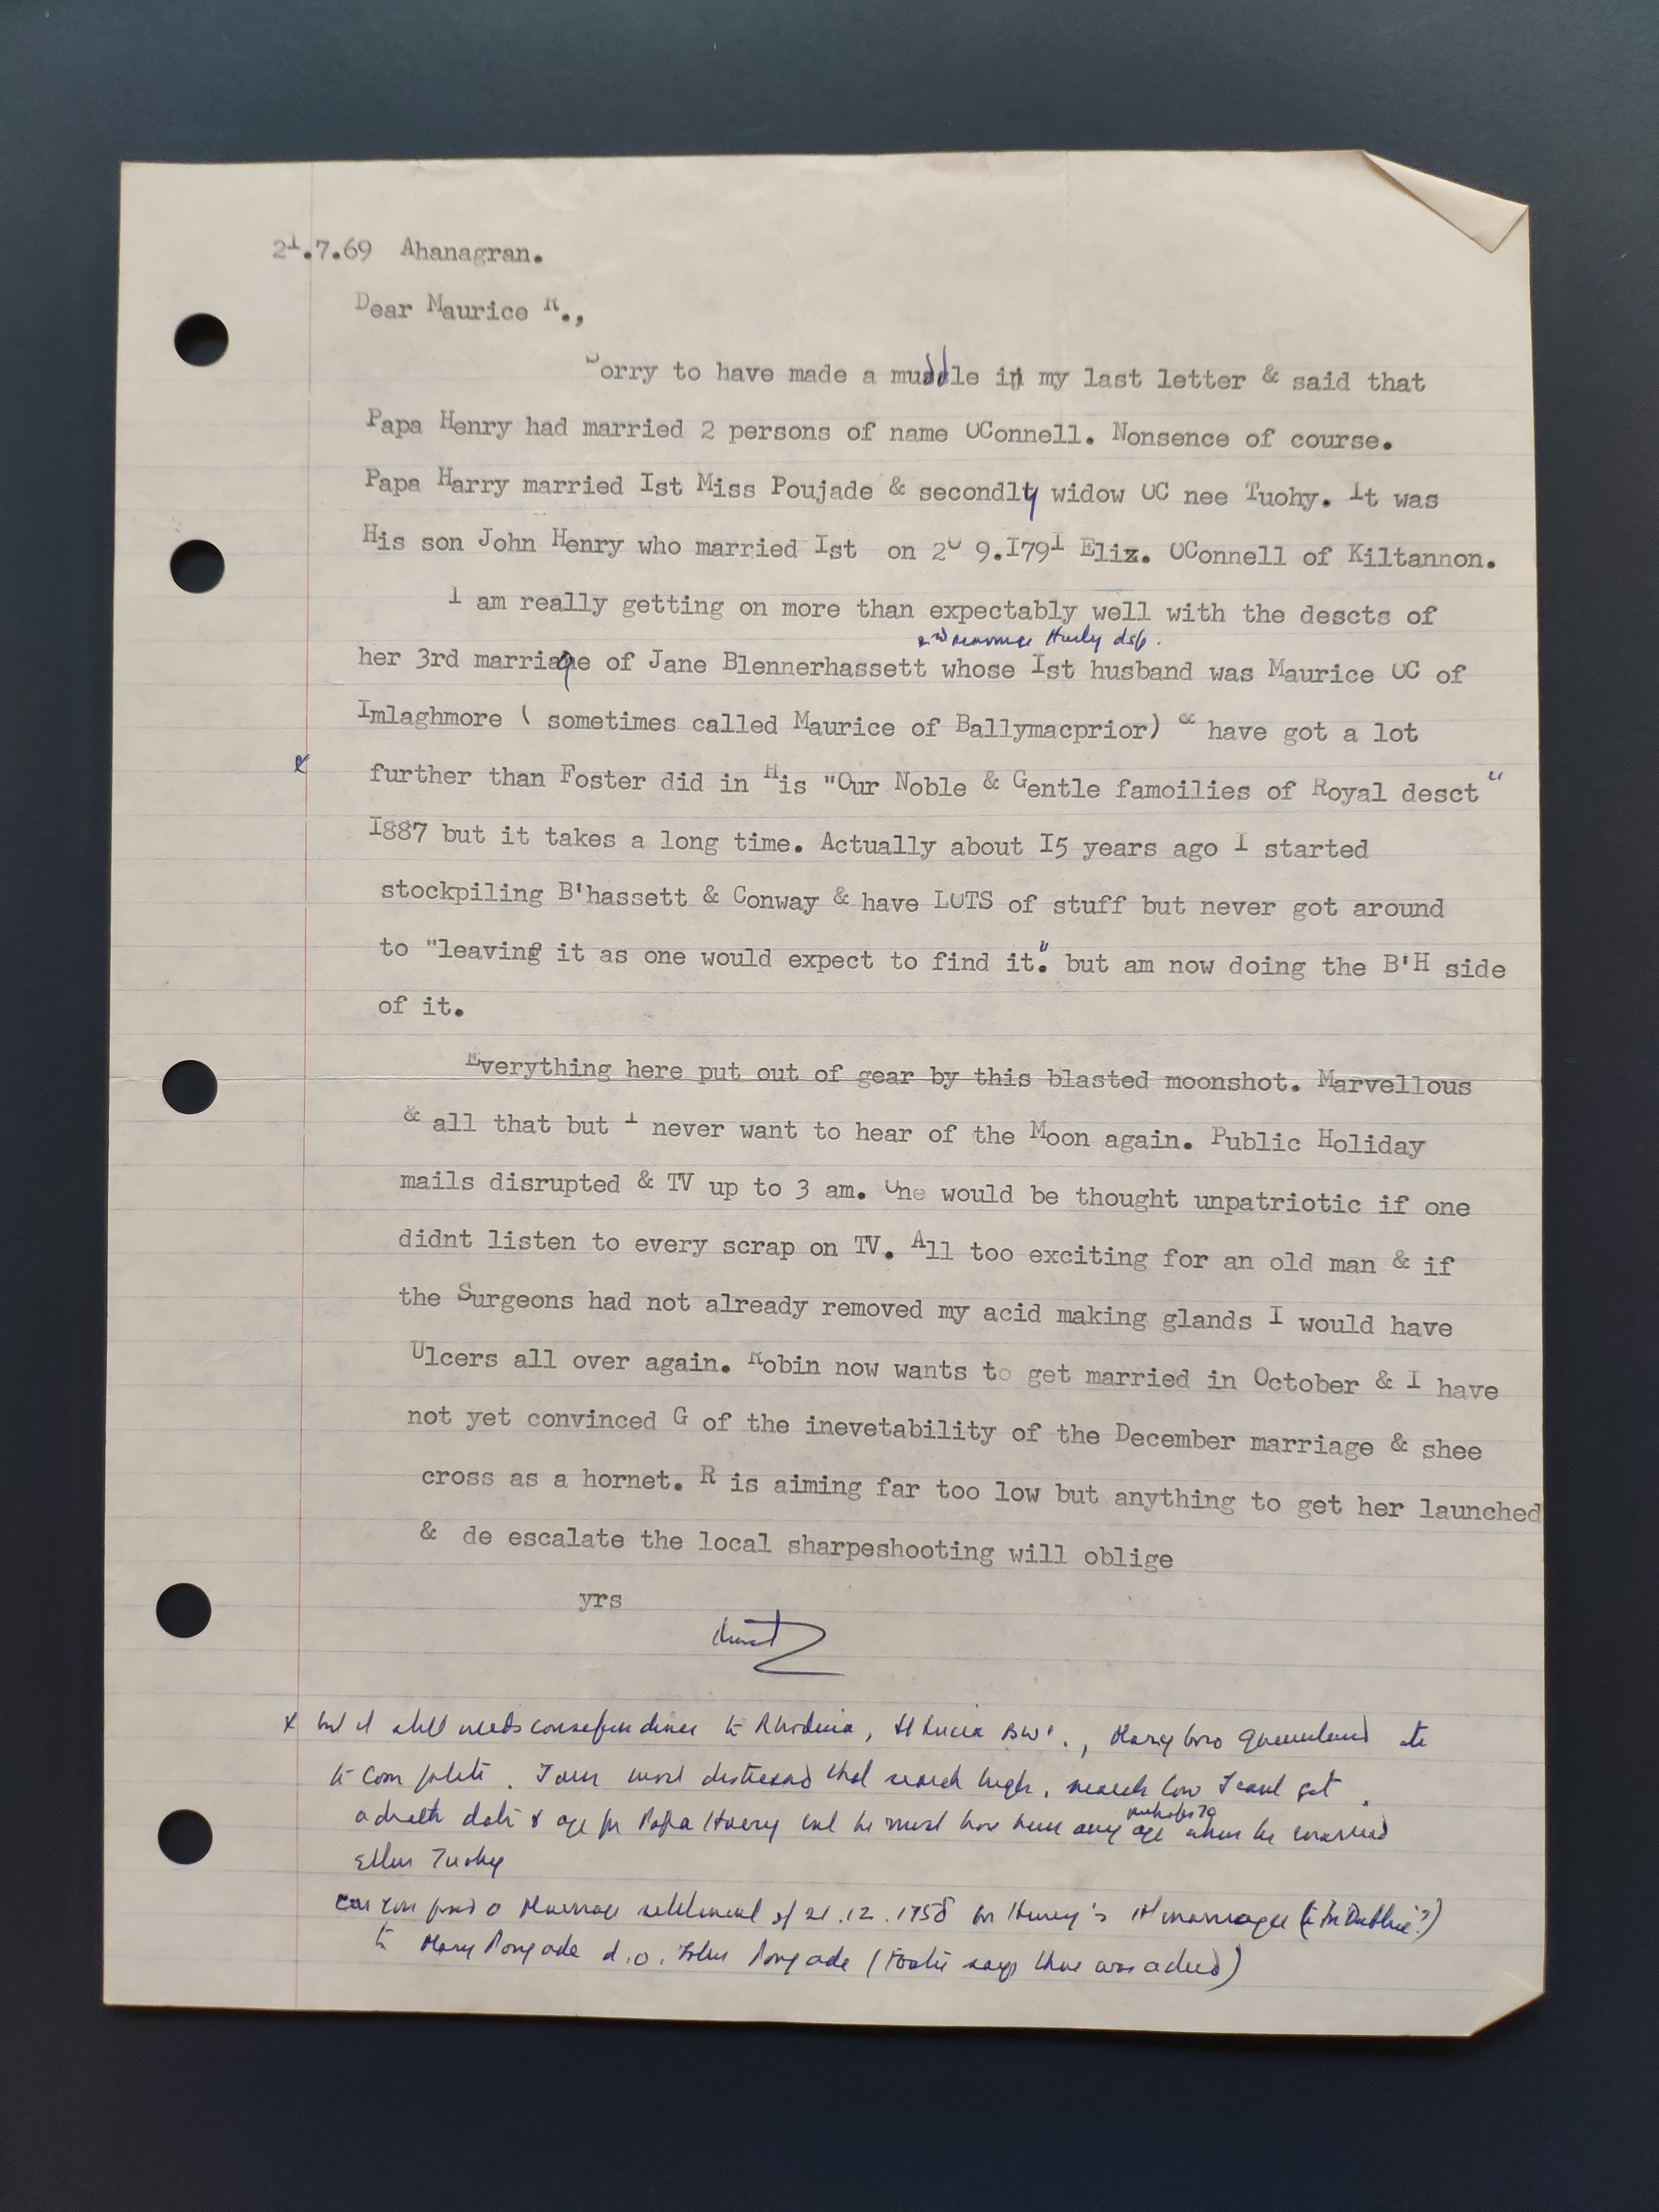 21.7.69 Ahanagran.
Dear Maurice R.,
Sorry to have made a muddle in my last letter & said that
Papa Henry had married 2 persons of name OConnell. Nonsence of course.
Papa Harry married Ist Miss Poujade & secondly widow OC nee Tuohy. It was
His son John Henry who married Ist on 20 9.I791 Eliz. OConnell of Kiltannon.
I am really getting on more than expectably well with the descts of
2nd Hurly dsp.
her 3rd marriage of Jane Blennerhassett whose Ist husband was Maurice OC of
Imlaghmore ( sometimes called Maurice of Ballymacprior) & have got a lot
x further than Foster did in His "Our Noble & Gentle famoilies of Royal desct"
I887 but it takes a long time. Actually about I5 years ago I started
stockpiling B'hassett & Conway & have LOTS of stuff but never got around
to "leaving it as one would expect to find it." but am now doing the B'H side
of it.
Everything here put out of gear by this blasted moonshot. Marvellous
& all that but I never want to hear of the Moon again. Public Holiday
mails disrupted & TV up to 3 am. One would be thought unpatriotic if one
didnt listen to every scrap on TV. All too exciting for an old man & if
the Surgeons had not already removed my acid making glands I would have
Ulcers all over again. Robin now wants to get married in October & I have
not yet convinced G of the inevetability of the December marriage & shee
cross as a hornet. R is aiming far too low but anything to get her launched
& de escalate the local sharpeshooting will oblige
yrs
x but it still needs correspondence to Rhodesia, St Lucia BWI., Maryboro Queensland etc
to complete. I am most distressed that search high, search low I cant get
a death date & age for Papa Harry but he must have been any age when he married
Ellen Tuohy
can you find a Marriage settlement of 21.12.1758 on Henry's 1st marriage (in Dublin?)
to Mary Poujade d.o. John Poujade (Foster says there was a deed)